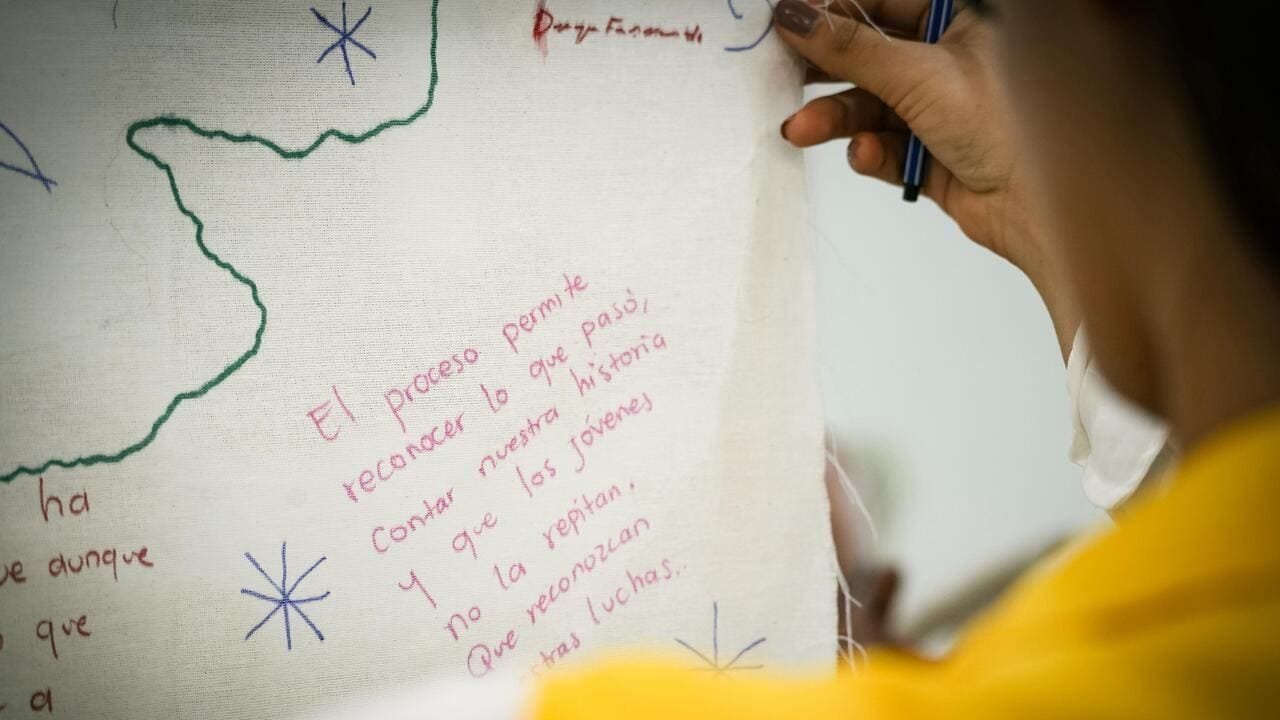 El proceso permite
reconocer lo que pasó,
contar nuestra historia
y que los jóvenes
no la repitan.
Que reconozcan
luchas..
ha
aunque
que
a